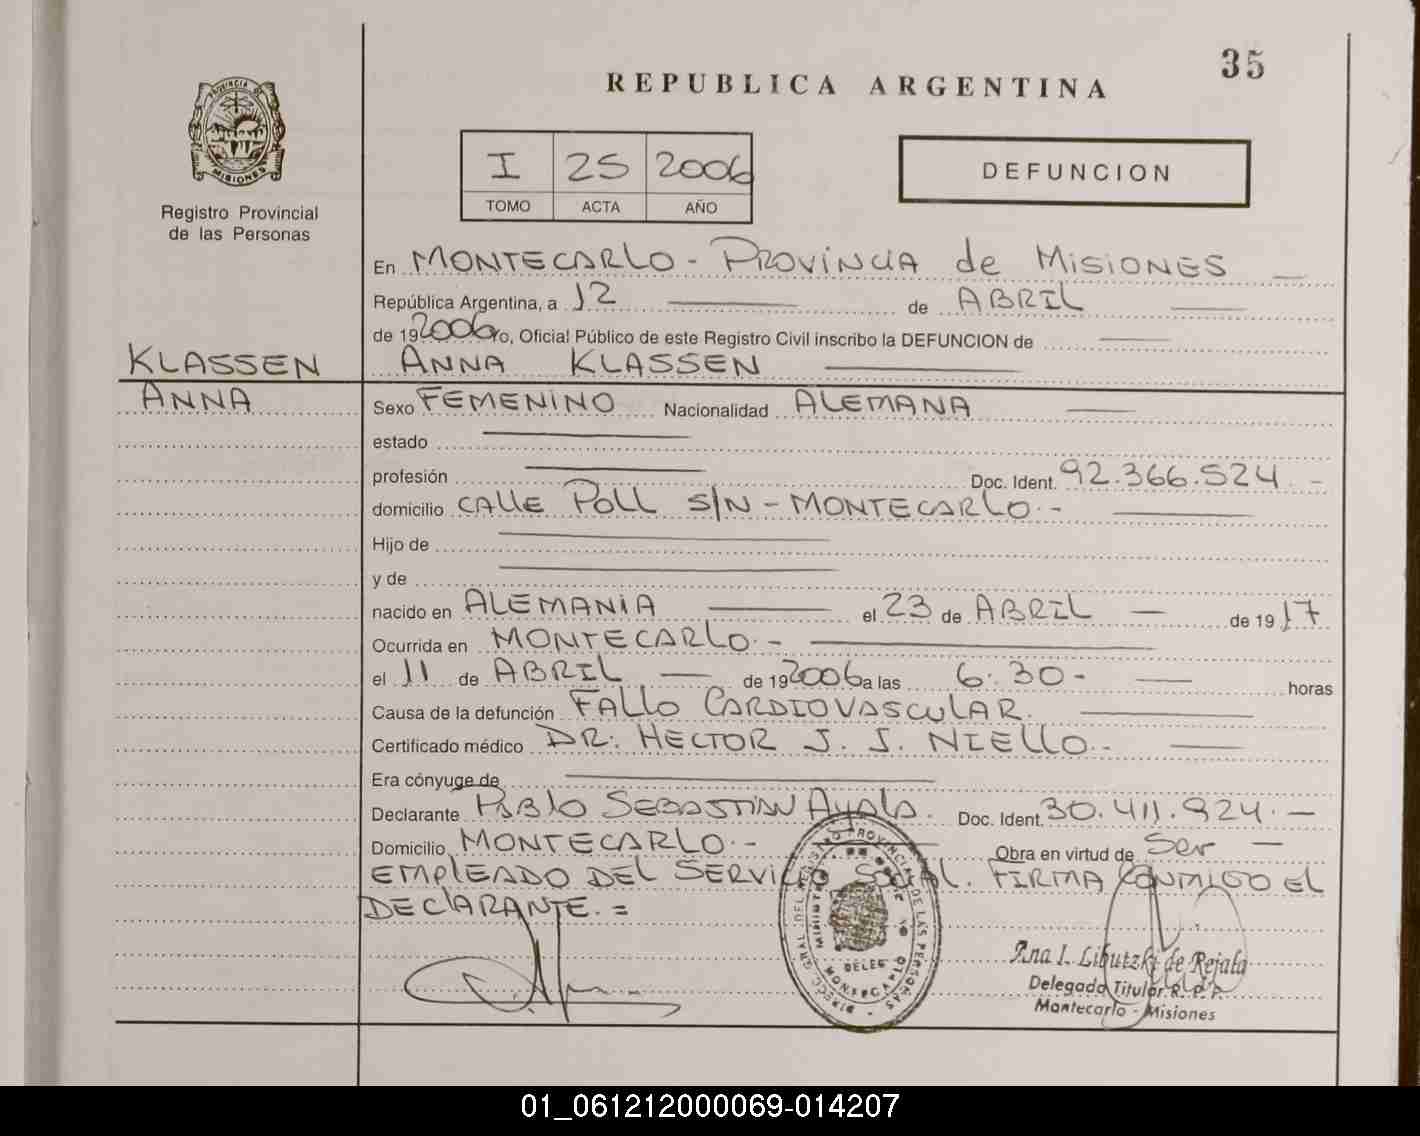 35
REPUBLICA ARGENTINA
PROVINCIA DE
MISIONES
Registro Provincial
de las Personas
I 25 2006
TOMO ACTA AÑO
DEFUNCION
En MONTECARLO - PROVINCIA de MISIONES
República Argentina, a 12 de ABRIL
de 19 2006 yo, Oficial Público de este Registro Civil inscribo la DEFUNCION de
KLASSEN ANNA KLASSEN
ANNA Sexo FEMENINO Nacionalidad ALEMANA
estado
profesión Doc. Ident. 92.366.524 -
domicilio CALLE POLL S/N - MONTECARLO.-
Hijo de
y de
nacido en ALEMANIA el 23 de ABRIL de 19 17
Ocurrida en MONTECARLO.-
el 11 de ABRIL de 19 2006 a las 6:30- horas
Causa de la defunción FALLO CARDIOVASCULAR.
Certificado médico DR: HECTOR J. J. NIELLO.-
Era cónyuge de
Declarante PABLO SEBASTIAN AYALA. Doc. Ident. 30.411.924.-
Domicilio MONTECARLO.- Obra en virtud de Ser
EMPLEADO DEL SERVICIO SOCIAL. FIRMA CONMIGO EL
DECLARANTE.=
DIRECC. GRAL. DEL REGISTRO PROVINCIAL DE LAS PERSONAS
DELEG
MONTECARLO
Ana I. Libutzki de Rejala
Delegada Titular R. P. P.
Montecarlo - Misiones
01_061212000069-014207